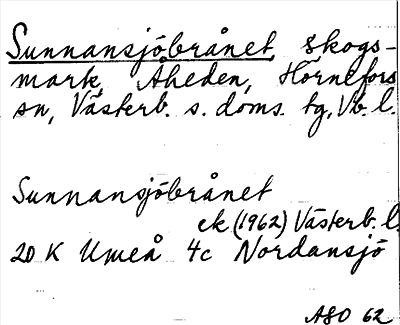 Sunnansjöbrånet, skogs-
mark, Åheden, Hörnefors
sn, Västerb. s. doms. tg, Vb. l.
Sunnansjöbrånet
ek (1962) Västerb. l.
20 K Umeå 4c Nordansjö
ASO 62